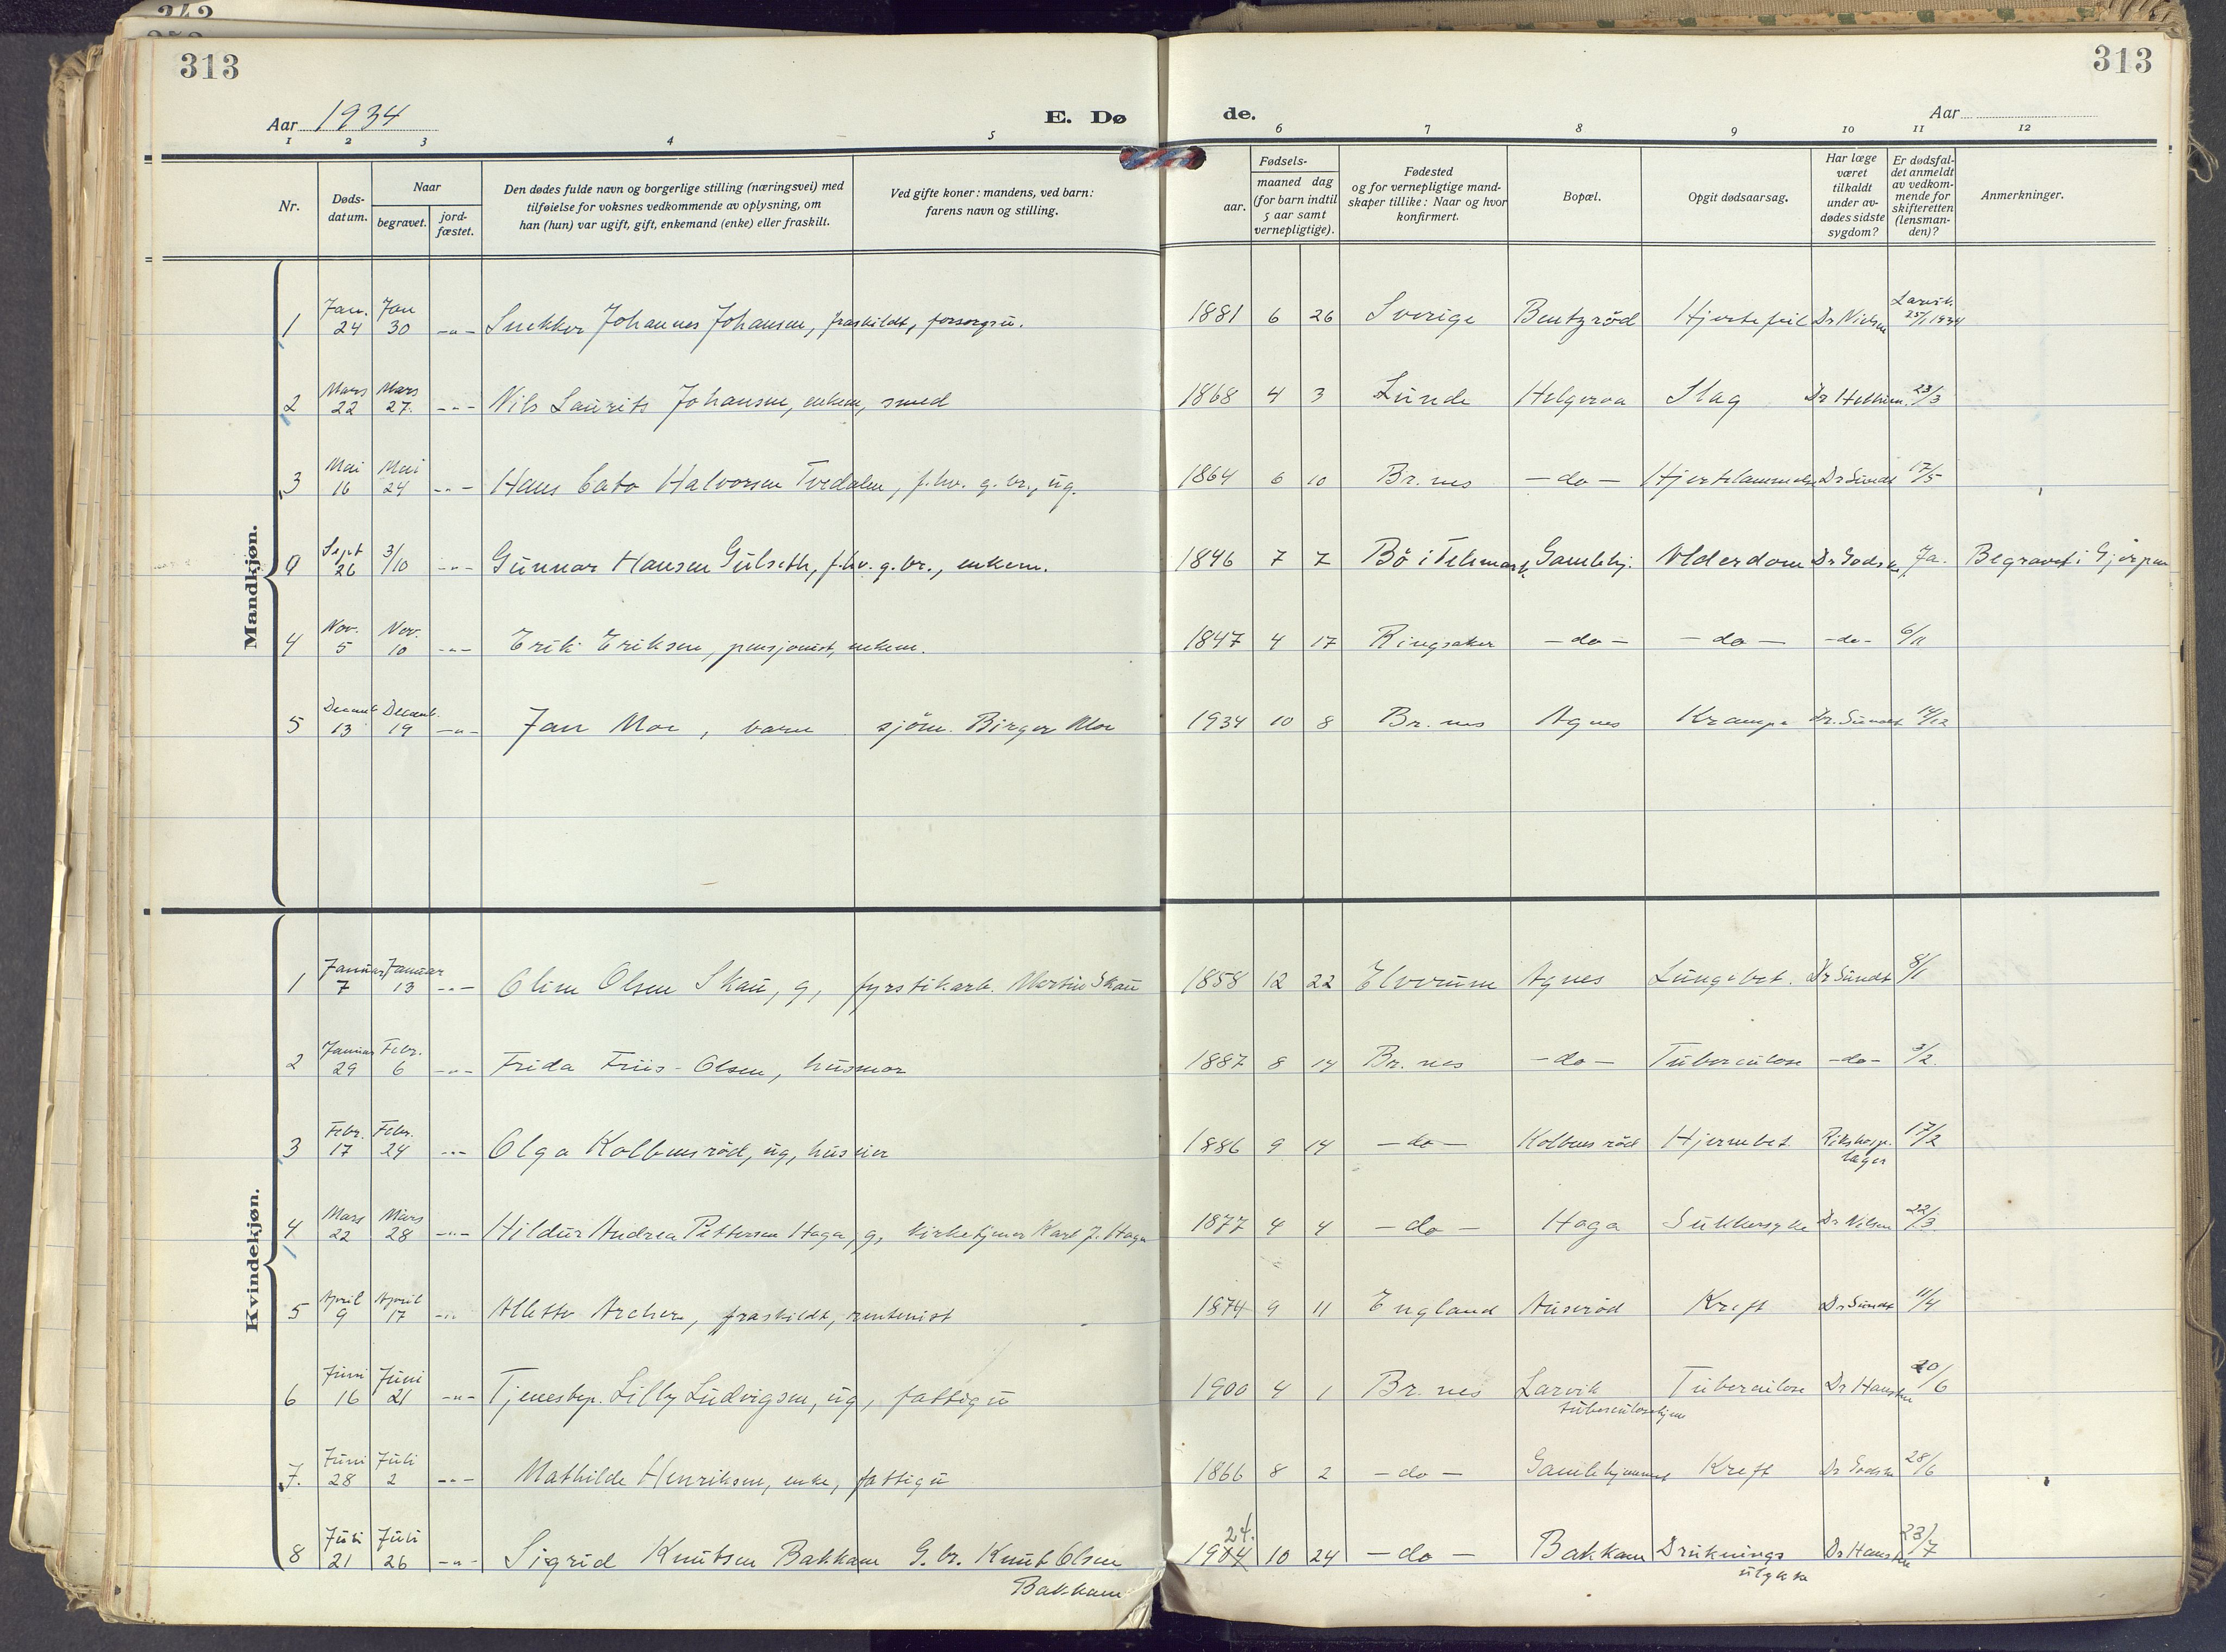 313
313
Aar 1934
E. Dø
de.
Aar
1 2 3 4 5 6 7 8 9 10 11 12
Nr.
Døds-
datum.
Naar
begravet.
jord-
fæstet.
Den dødes fulde navn og borgerlige stilling (næringsvei) med
tilføielse for voksnes vedkommende av oplysning, om
han (hun) var ugift, gift, enkemand (enke) eller fraskilt.
Ved gifte koner: mandens, ved barn:
farens navn og stilling.
Fødsels-
aar.
maaned dag
(for barn indtil
5 aar samt
vernepligtige).
Fødested
og for vernepligtige mand-
skaper tillike: Naar og hvor
konfirmert.
Bopæl.
Opgit dødsaarsag.
Har læge
været
tilkaldt
under av-
dødes sidste
sygdom?
Er dødsfal-
det anmeldt
av vedkom-
mende for
skifteretten
(lensman-
den)?
Anmerkninger.
Mandkjøn.
1 Jan. 24 Jan 30 -"- Snekker Johannes Johansen, fraskildt, forsorgsu. 1881 6 26 Sverige Bentzrød Hjertefeil Dr Nielsen Larvik 25/1 1934
2 Mars 22 Mars 27. -"- Nils Laurits Johansen, enkem, smed 1868 4 3 Lunde Helgeroa Slag Dr 23/3
3 Mai 16 Mai 24 -"- Hans Cato Halvorsen Tvedalen, f.hv. g.br., ug. 1864 6 10 Br.nes -do- Hjertelammelse Dr Sundt 17/5
0 Sept 26 3/10 -"- Gunnar Hansen Gulseth, f.hv. g.br., enkem. 1846 7 7 Bö i Telemark Gamlehj. Alderdom Dr Ja. Begravet i Gjerpen
4 Nov. 5 Nov. 10 -"- Erik Eriksen, pensjonist, enkem. 1847 4 17 Ringsaker -do- -do- -do- 6/11
5 Decemb 13 Decemb. 19 -"- Jan Moe, barn sjöm. Birger Moe 1934 10 8 Br.nes Agnes Krampe Dr. Sundt 14/12
Kvindekjøn.
1 Januar 7 Januar 13 -"- Oline Olsen Skau, g, fyrstikarb. Martin Skau 1858 12 22 Elverum Agnes Lungebet. Dr Sundt 8/1
2 Januar 29 Febr. 6 -"- Frida Friis-Olsen, husmor 1887 8 14 Br.nes -do- Tuberculose -do- 3/2.
3 Febr. 17 Febr. 24 -"- Olga Kolbensrød, ug, huseier 1886 9 14 -do- Kolbensrød Hjernebet. Rikshosp. læger 17/2
4 Mars 22 Mars 28 -"- Hildur Andrea Pettersen Haga, g, kirketjener Karl J. Haga 1877 4 4 -do- Haga Sukkersyke Dr Nilsen 22/3.
5 April 9 April 17 -"- Alette Archer, fraskildt, rentenist 1874 9 11 England Auserød Kreft Dr Sundt 11/4
6 Juni 16 Juni 21 -"- Tjenestep. Lilly Ludvigsen, ug, fattigu 1900 4 1 Br.nes Larvik tuberculosehjem Tuberculose Dr Hansteen 20/6
7. Juni 28 Juli 2 -"- Mathilde Henriksen, enke, fattigu 1866 8 2 -do- Gamlehjemmet Kreft Dr 28/6
8 Juli 21 Juli 26 -"- Sigrid Knutsen Bakkane G.br. Knut Olsen Bakkane 1924. 10 24 -do- Bakkane Druknings ulykke Dr Hansteen 23/7